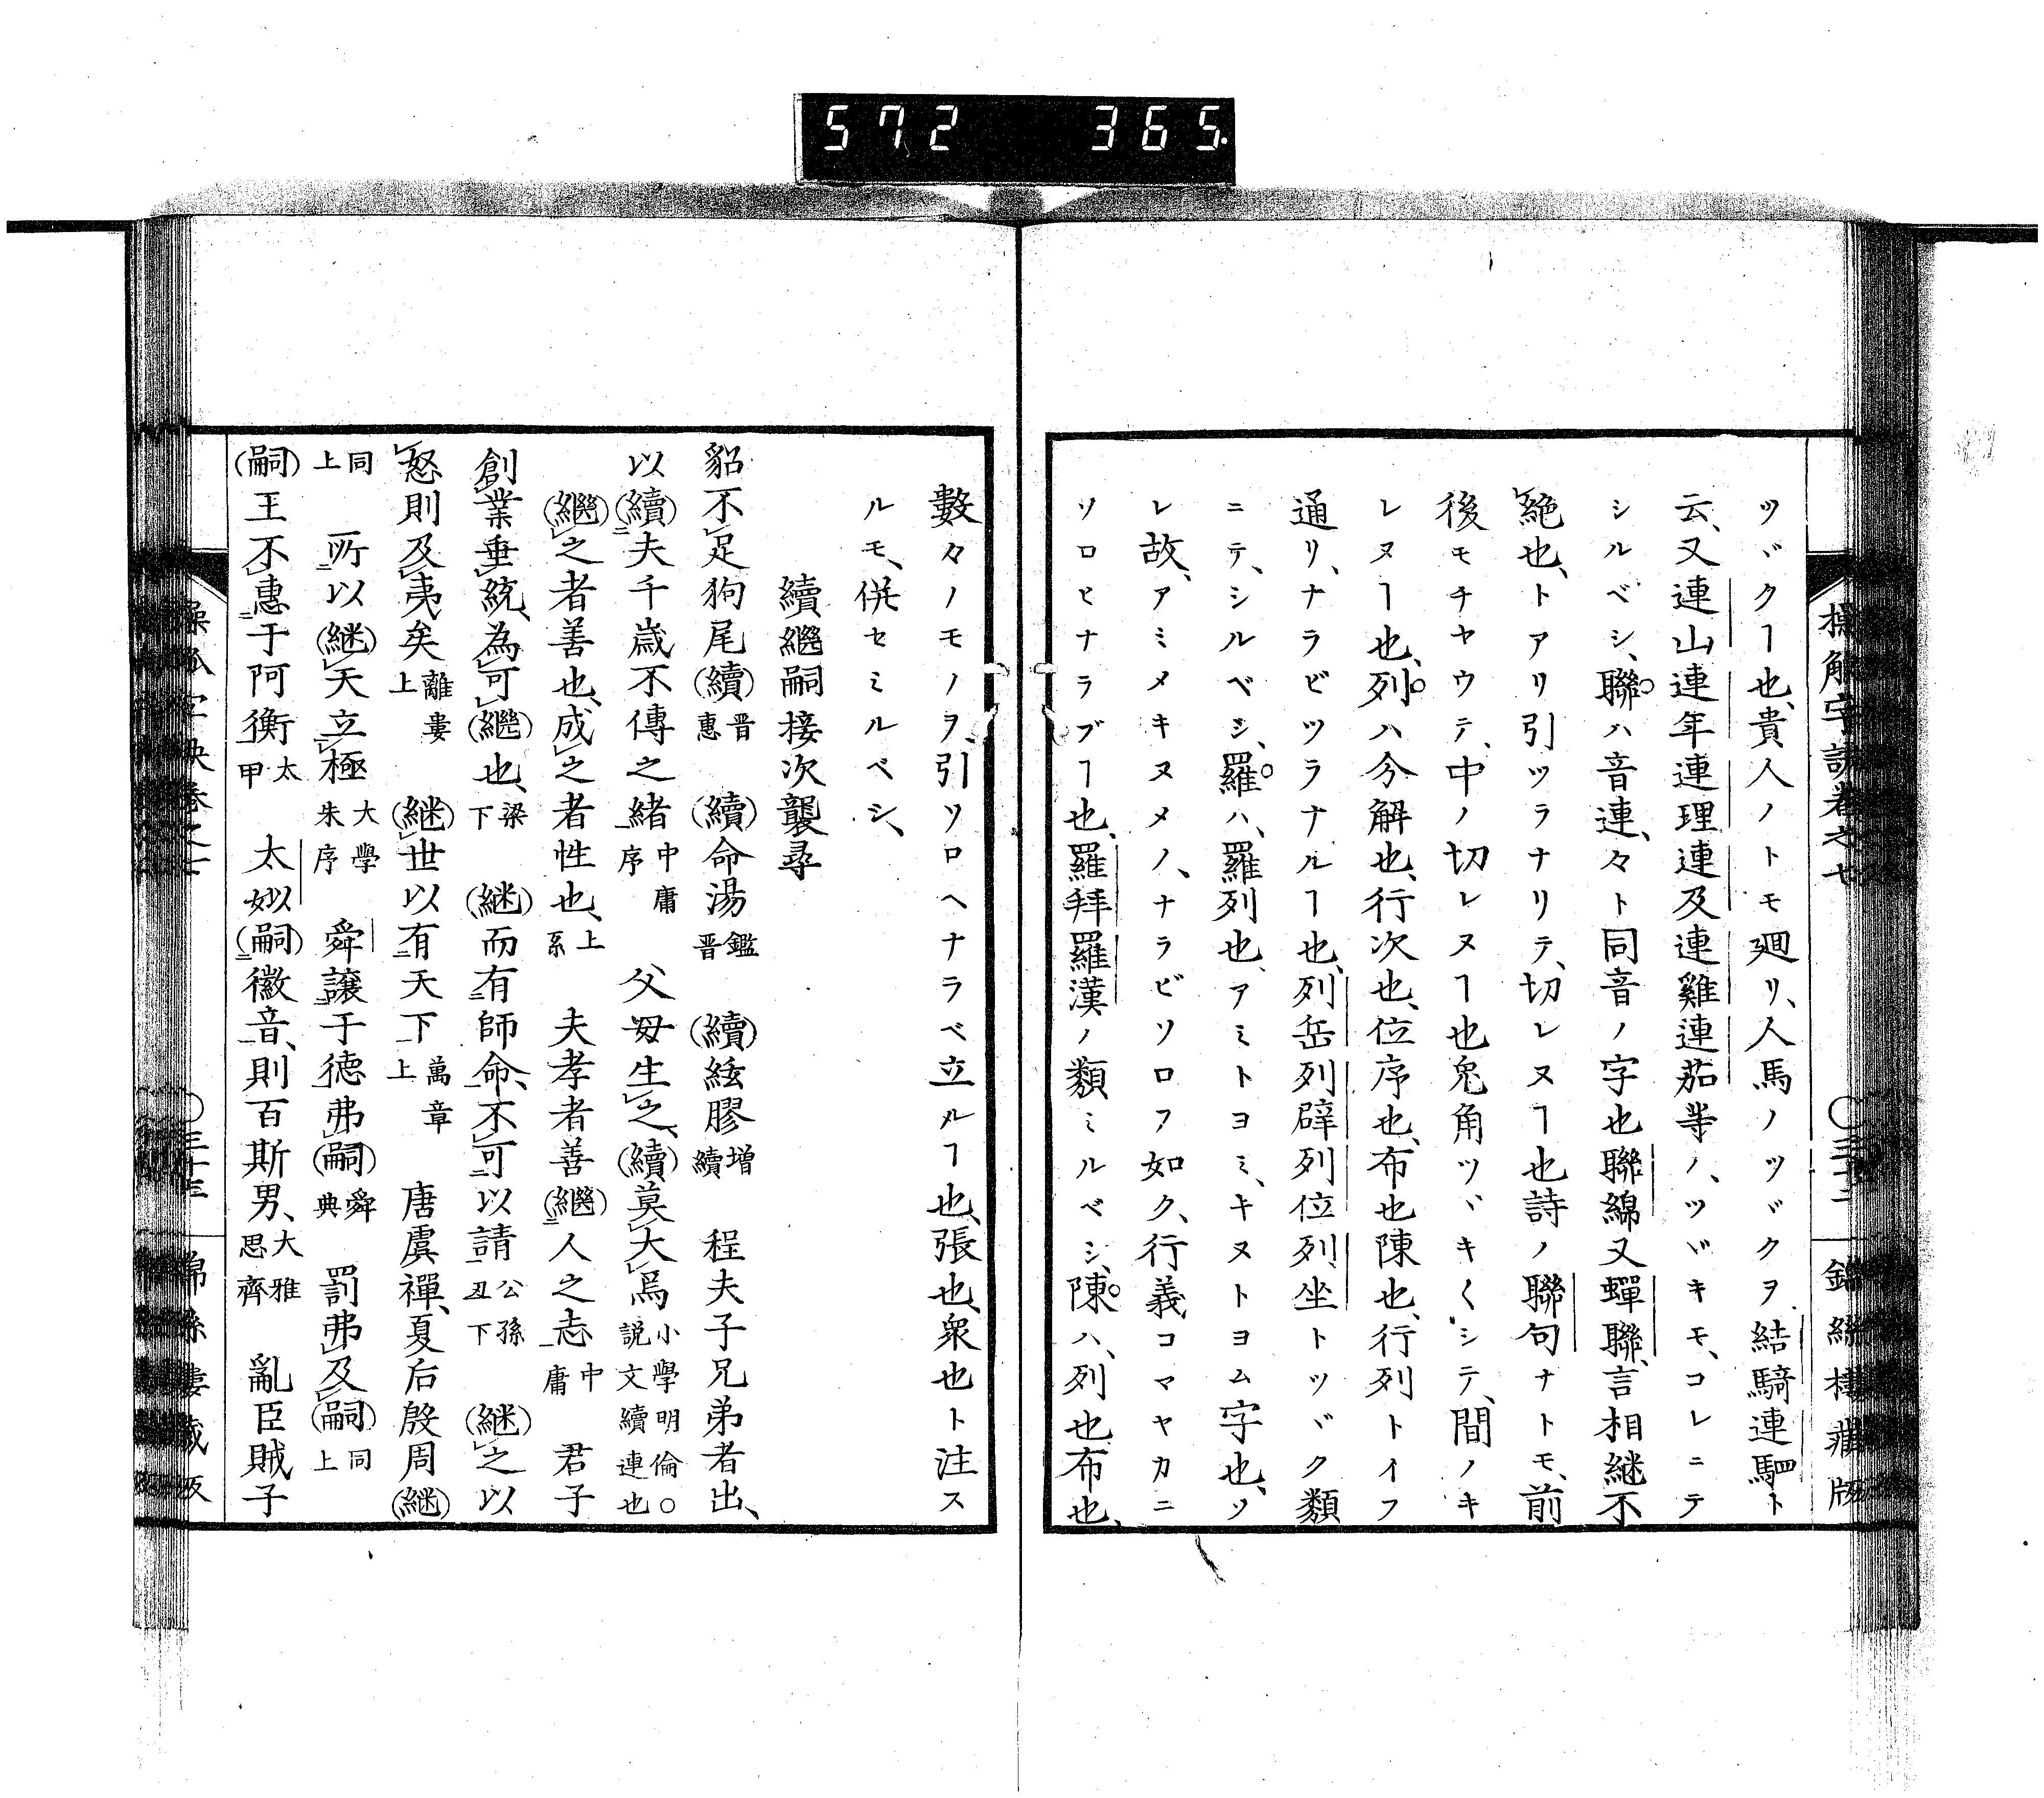 572 365
ツヾクヿ也、貴人ノトモ廻リ、人馬ノツヾクヲ、結騎連駟ト
云、又連山連年連理連及連雞連茹等ノ、ツヾキモ、コレニテ
シルベシ、聯ハ音連、々ト同音ノ字也聯綿又蟬聯、言相継不
絶也、トアリ引ツラナリテ、切レヌヿ也詩ノ聯句ナトモ、前
後モチヤウテ、中ノ切レヌヿ也兔角ツヾキ〱シテ、間ノキ
レヌヿ也、列ハ分解也、行次也、位序也、布也陳也、行列トイフ
通リ、ナラビツラナルヿ也、列岳列辟列位列坐トツヾク類
ニテ、シルベシ、羅ハ、羅列也、アミトヨミ、キヌトヨム字也、ソ
レ故、アミメキヌメノ、ナラビソロフ如ク、行義コマヤカニ
ソロヒナラブヿ也、羅拜羅漢ノ類ミルベシ、陳ハ、列也布也、
數々ノモノヲ、引ソロヘナラベ立ルヿ也、張也、衆也ト注ス
ルモ、併セミルベシ、
續繼嗣接次襲尋
貂不足狗尾續晋惠 續命湯鑑晋 續絃膠增續 程夫子兄弟者出、
以續夫千歳不傳之緒中庸序 父母生之、續莫大焉小學明倫○說文續連也
繼之者善也、成之者性也、上系 夫孝者善繼人之志中庸 君子
創業垂統、為可繼也、梁下 継而有師命、不可以請公孫丑下 継之以
怒則及夷矣離婁上 継世以有天下萬章上 唐虞禪、夏后殷周継
同上 所以継天立極大學朱序 舜讓于德弗嗣舜典 罰弗及嗣同上
嗣王不惠于阿衡太甲 太姒嗣徽音、則百斯男、大雅思齊 亂臣賊子